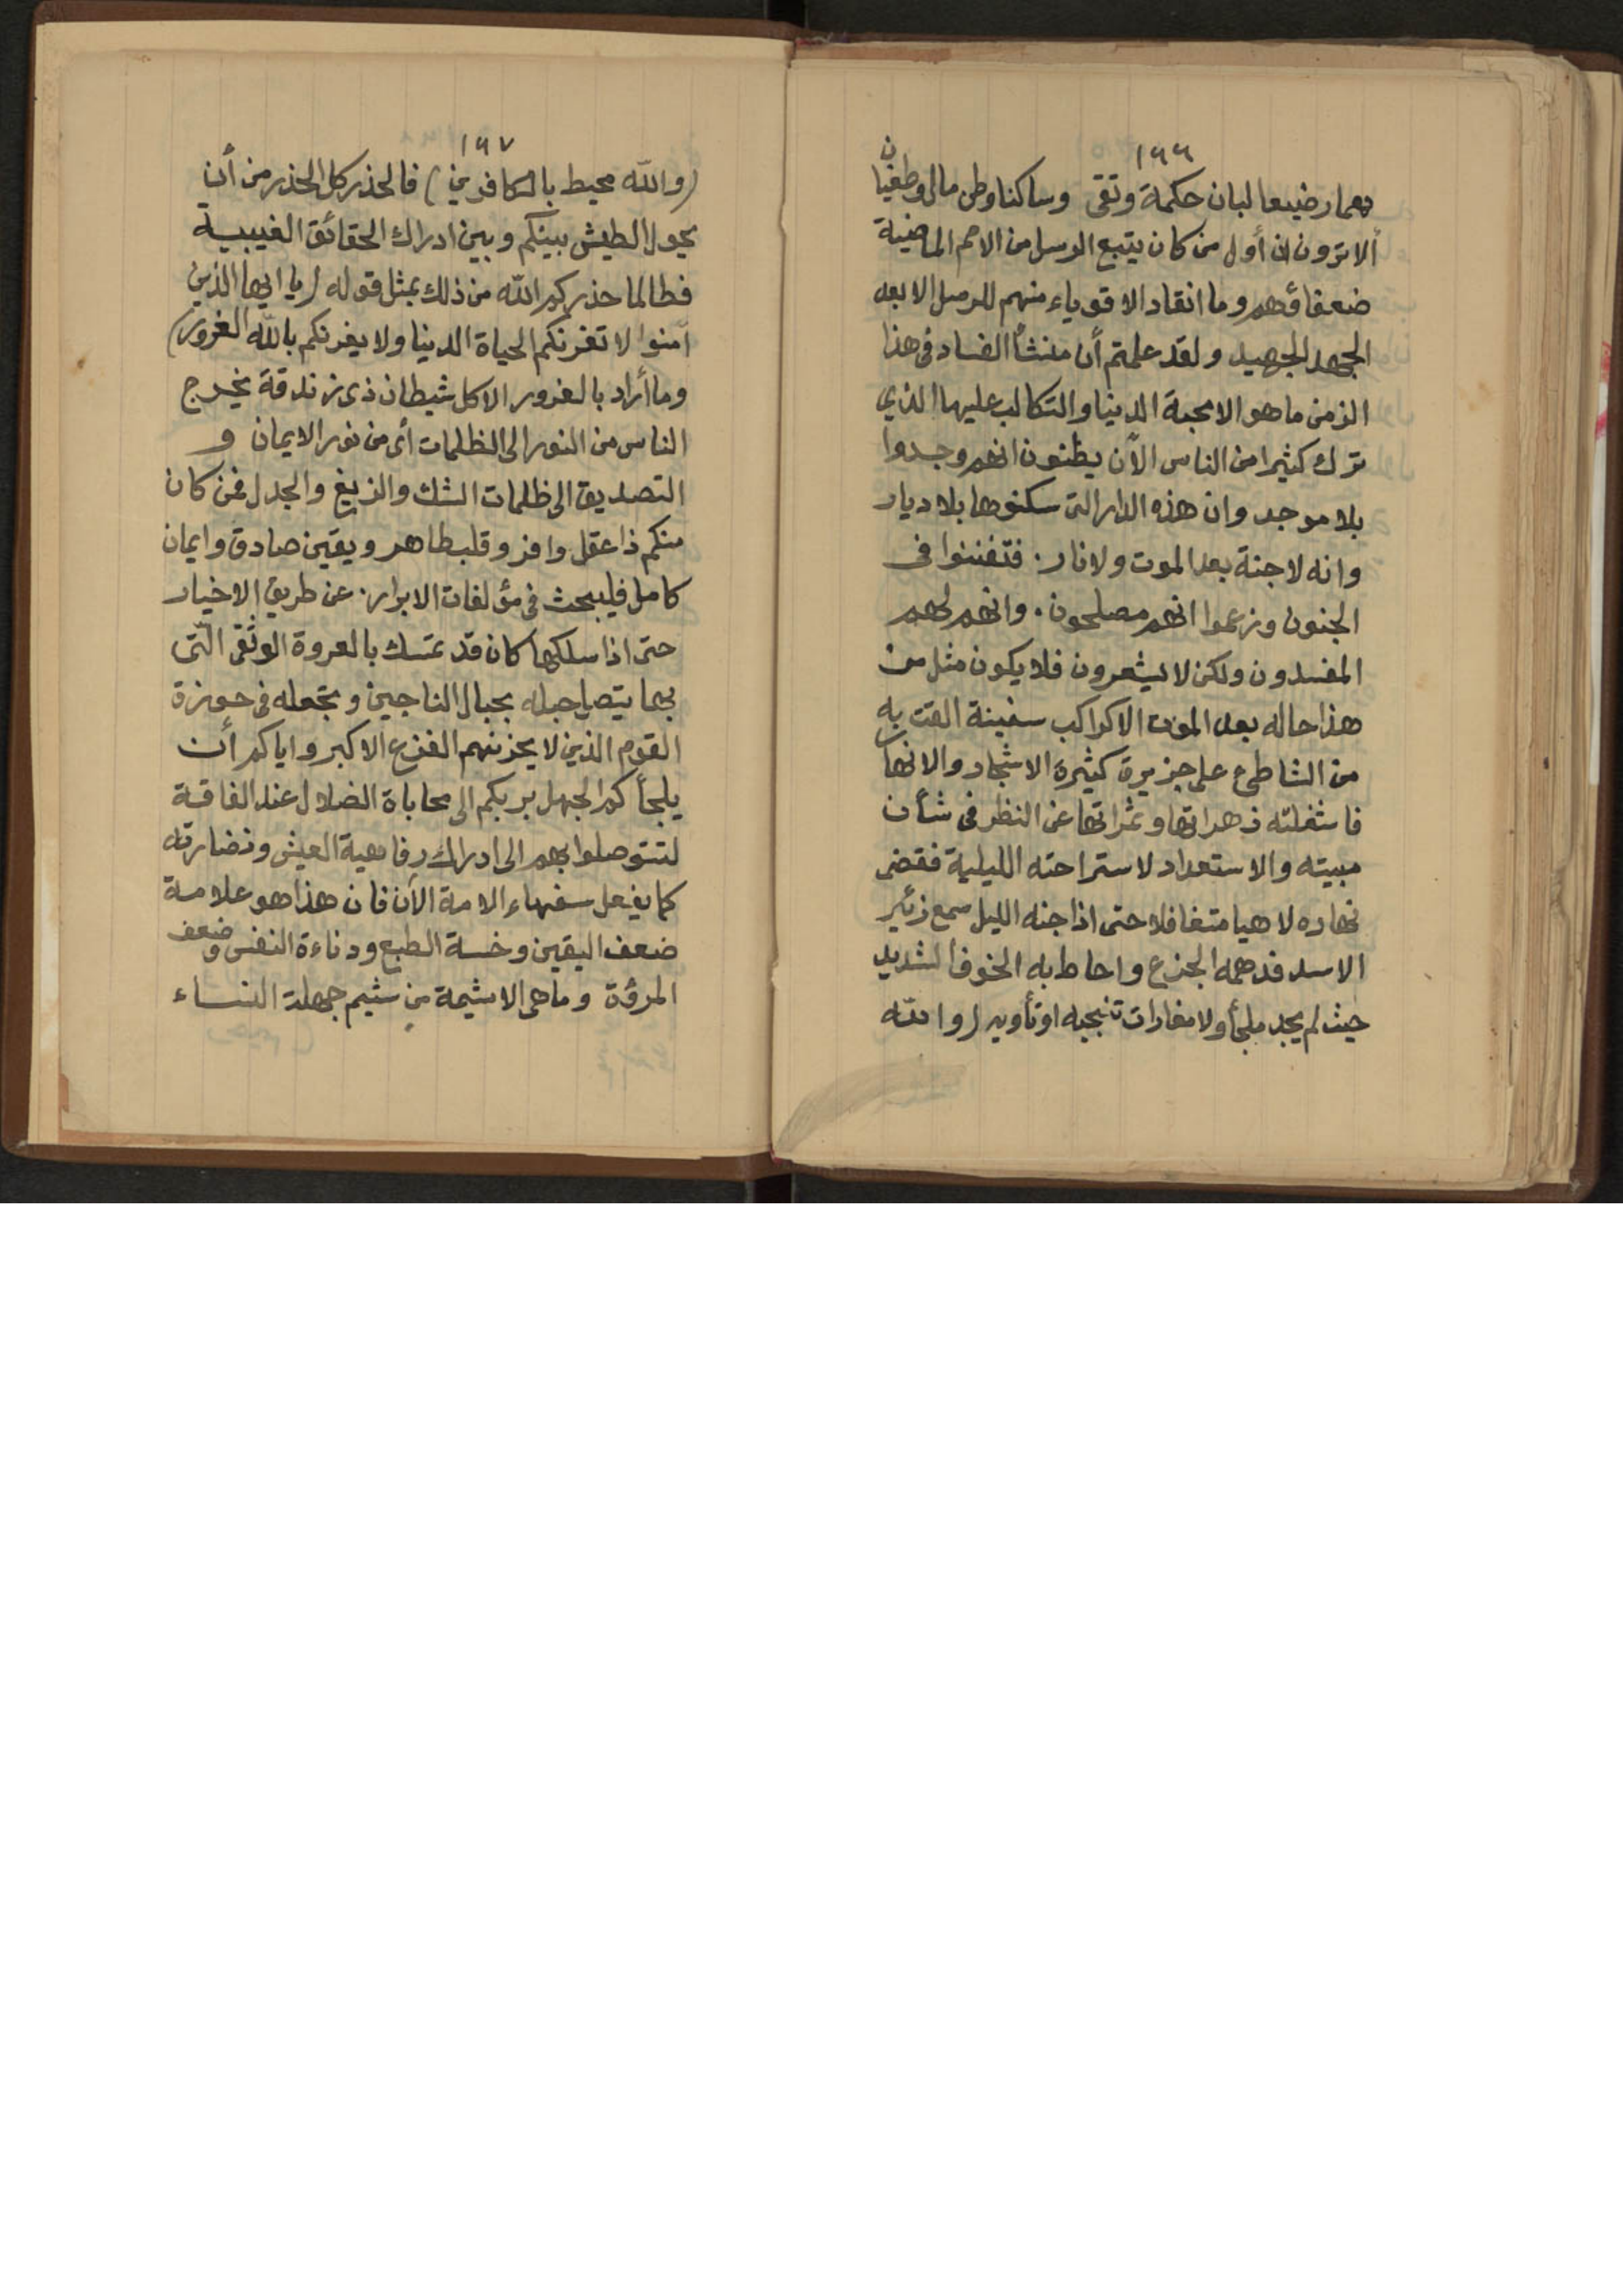 ١٦٦
فهما رضيعا لبان حكمة وتقى وساكنا وطن مال وطغيان
ألا ترون ان أول من كان يتبع الرسل من الامم الماضية
ضعفاؤهم وما انقاد الاقوياء منهم للرسل الا بعد
الجهد الجهيد ولقد علمتم أن منشأ الفساد فى هذا
الزمن ما هو الا محبة الدنيا والتكالب عليها الذي
ترك كثيرا من الناس الآن يظنون انهم وجدوا
بلا موجد وان هذه الدار التى سكنوها بلا ديار
وانه لا جنة بعد الموت ولا نار. فتفننوا فى
الجنون وزعموا انهم مصلحون. وانهم لهم
المفسدون ولكن لا يشعرون فلا يكون مثل من
هذا حاله بعد الموت الا كراكب سفينة القت به
من الشاطئ على جزيرة كثيرة الاشجار والانهار
فاشغلته زهراتها وثمراتها عن النظر فى شأن
مبيته والاستعداد لاستراحته الليلية فقضى
نهاره لاهيا متغافلا حتى اذا جنه الليل سمع زئير
الاسد فدهمه الجزع واحاط به الخوف الشديد
حيث لم يجد ملجأ ولا مغارات تنجيه او تأويه (والله
١٦٧
(والله محيط بالكافرين) فالحذر كل الحذر من أن
يحول الطيش بينكم وبين ادراك الحقائق الغيبية
فطالما حذركم الله من ذلك بمثل قوله (يا ايها الذين
آمنوا لا تغرنكم الحياة الدنيا ولا يغرنكم بالله الغرور)
وما أراد بالغرور الا كل شيطان ذى زندقة يخرج
الناس من النور الى الظلمات أى من نور الايمان و
التصديق الى ظلمات الشك والزيغ والجدل فمن كان
منكم ذا عقل وافر وقلب طاهر ويقين صادق وايمان
كامل فليبحث فى مؤلفات الابرار. عن طريق الاخيار
حتى اذا سلكها كان قد تمسك بالعروة الوثقى الّتى
بها يتصل حبله بحبال الناجين وتجعله فى حوزة
القوم الذين لا يحزنهم الفزع الاكبر واياكم أن
يلجأكم الجهل بربكم الى محاباة الضلال عند الفاقة
لتتوصلوا بهم الى ادراك رفاهية العيش ونضارته
كما يفعل سفهاء الامة الآن فان هذا هو علامة
ضعف اليقين وخسة الطبع ودناءة النفس وضعف
المرؤة وما هى الا شيمة من شيم جهلة النساء